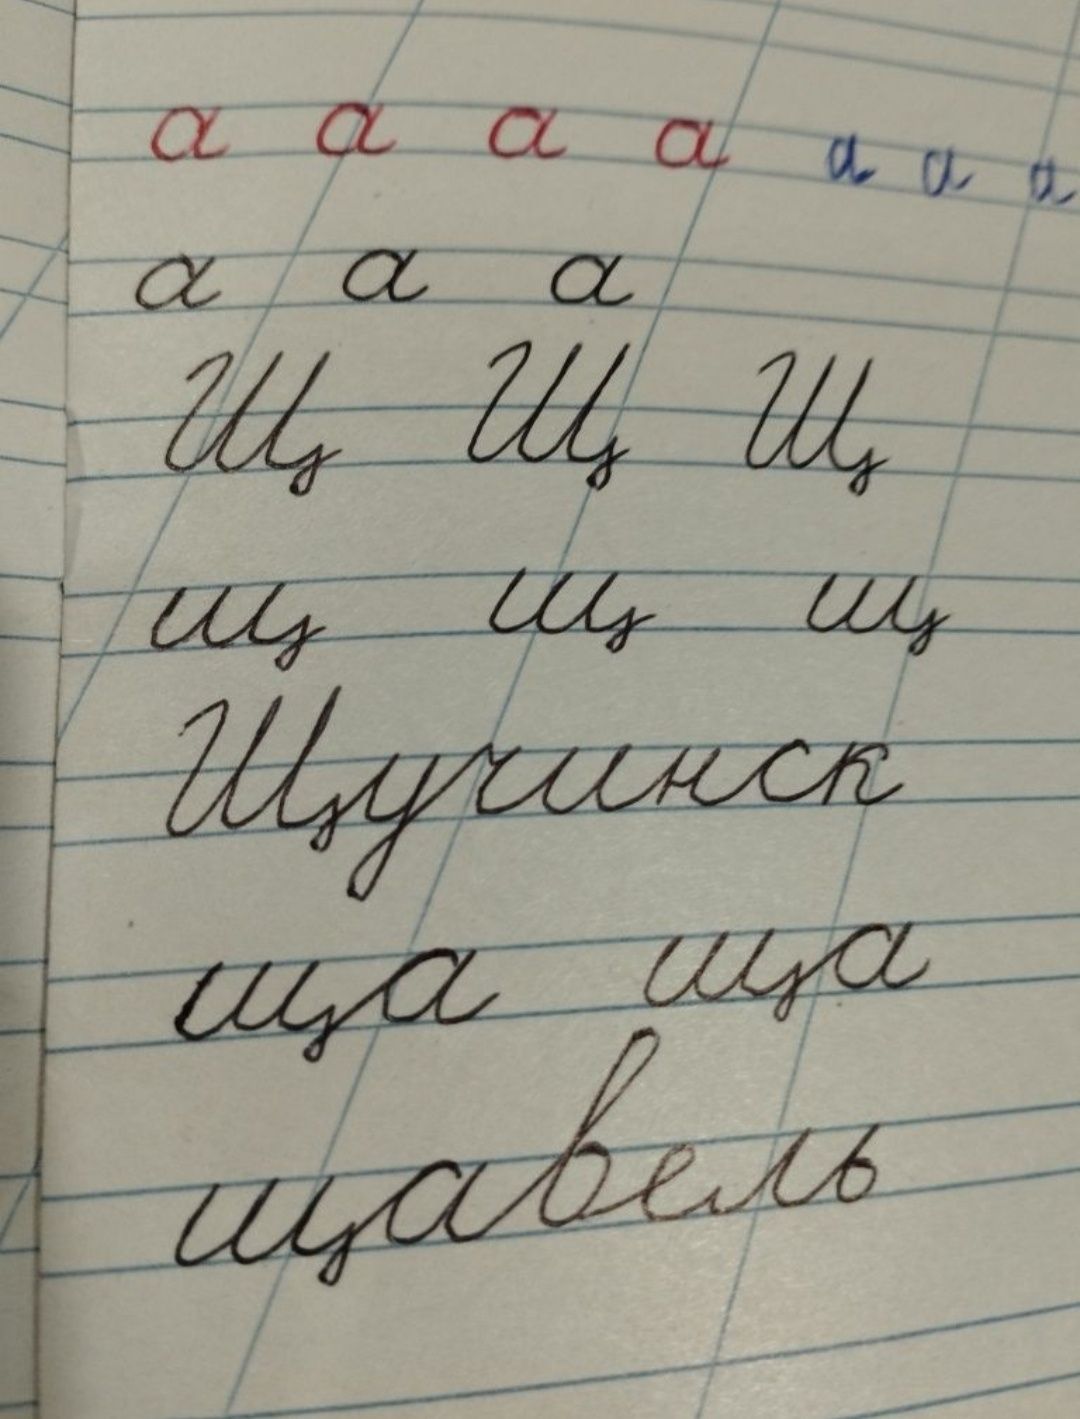 а а а а а а а
а а а
Щ Щ Щ
щ щ щ
Щучинск
ща ща
щавель